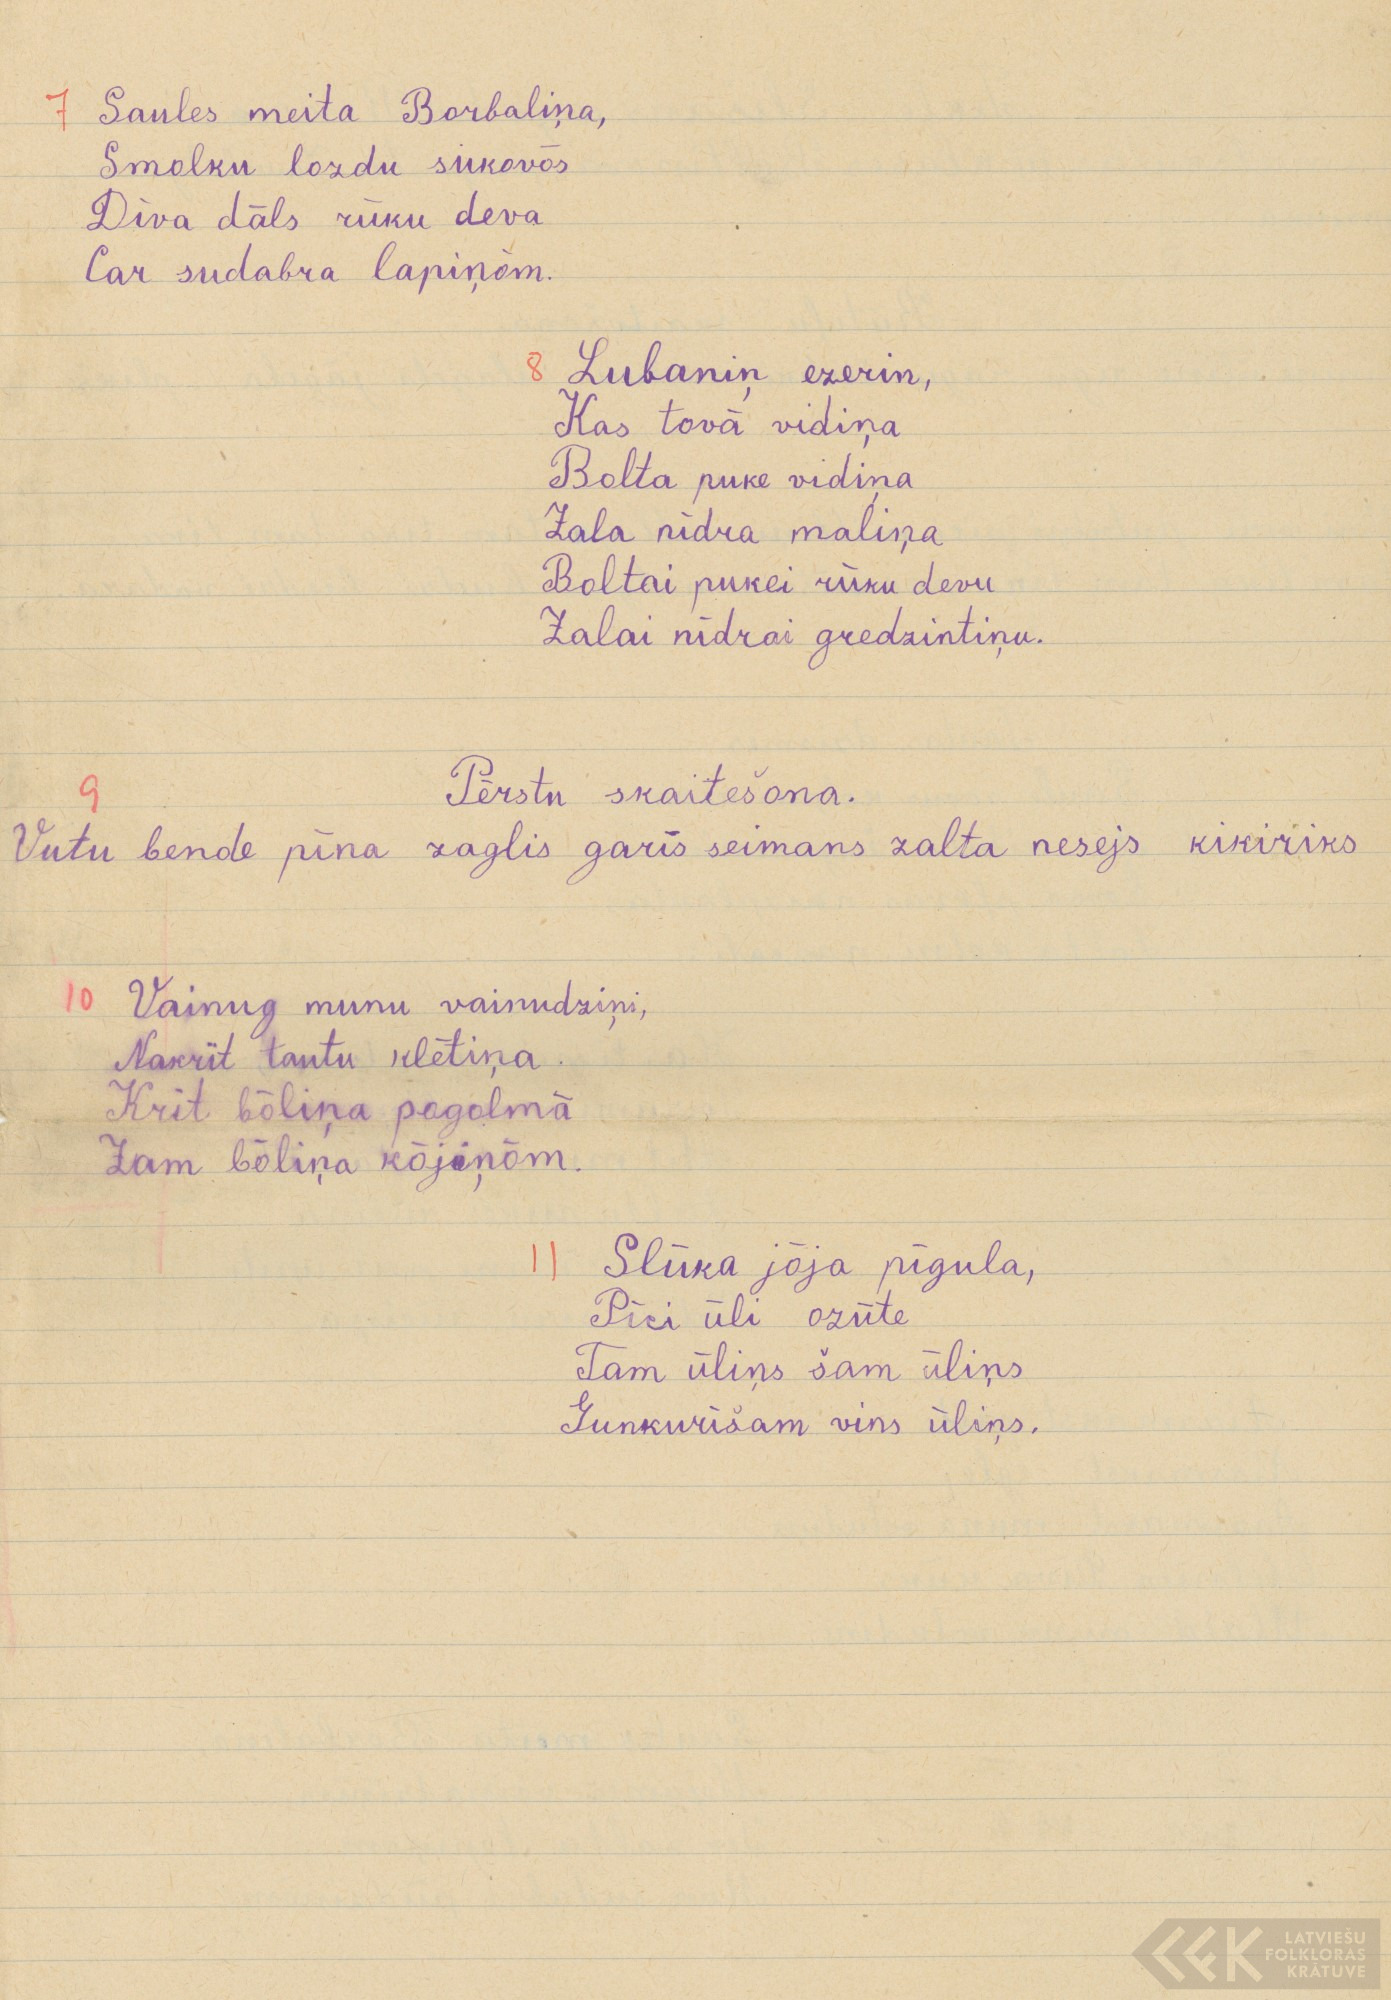 7 Saules meita Borbaliņa,
Smolku lozdu sukovōs
Dīva dāls rūku deva
Car sudabra lapiņōm.
8 Lubaniņ ezerin,
Kas tovā vidiņa
Bolta puke vidiņa
Zala nīdra maliņa
Boltai pukei rūku devu
Zalai nīdrai gredzintiņu.
9 Pērstu skaitešona.
Vutu bende pīna zaglis garīs seimans zalta nesejs kikiriks
10 Vainug munu vainudziņi,
Nakrīt tautu klētiņa.
Krīt bōliņa pagolmā
Zam bōliņa kōjiņōm.
11 Slūka jōja pīgula,
Pīci ūli ozūte
Tam ūliņs šam ūliņs
Gunkurīšam vins ūliņs.
LATVIEŠU
FOLKLORAS
KRĀTUVE